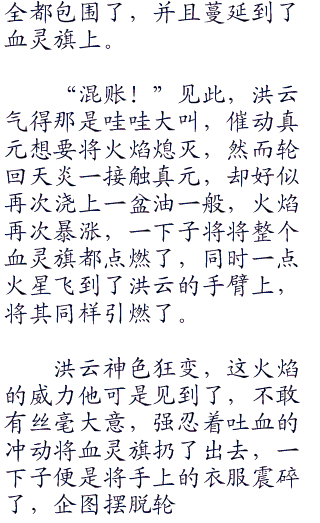 全都包围了，并且蔓延到了
血灵旗上。
“混账！”见此，洪云
气得那是哇哇大叫，催动真
元想要将火焰熄灭，然而轮
回天炎一接触真元，却好似
再次浇上一盆油一般，火焰
再次暴涨，一下子将将整个
血灵旗都点燃了，同时一点
火星飞到了洪云的手臂上，
将其同样引燃了。
洪云神色狂变，这火焰
的威力他可是见到了，不敢
有丝毫大意，强忍着吐血的
冲动将血灵旗扔了出去，一
下子便是将手上的衣服震碎
了，企图摆脱轮